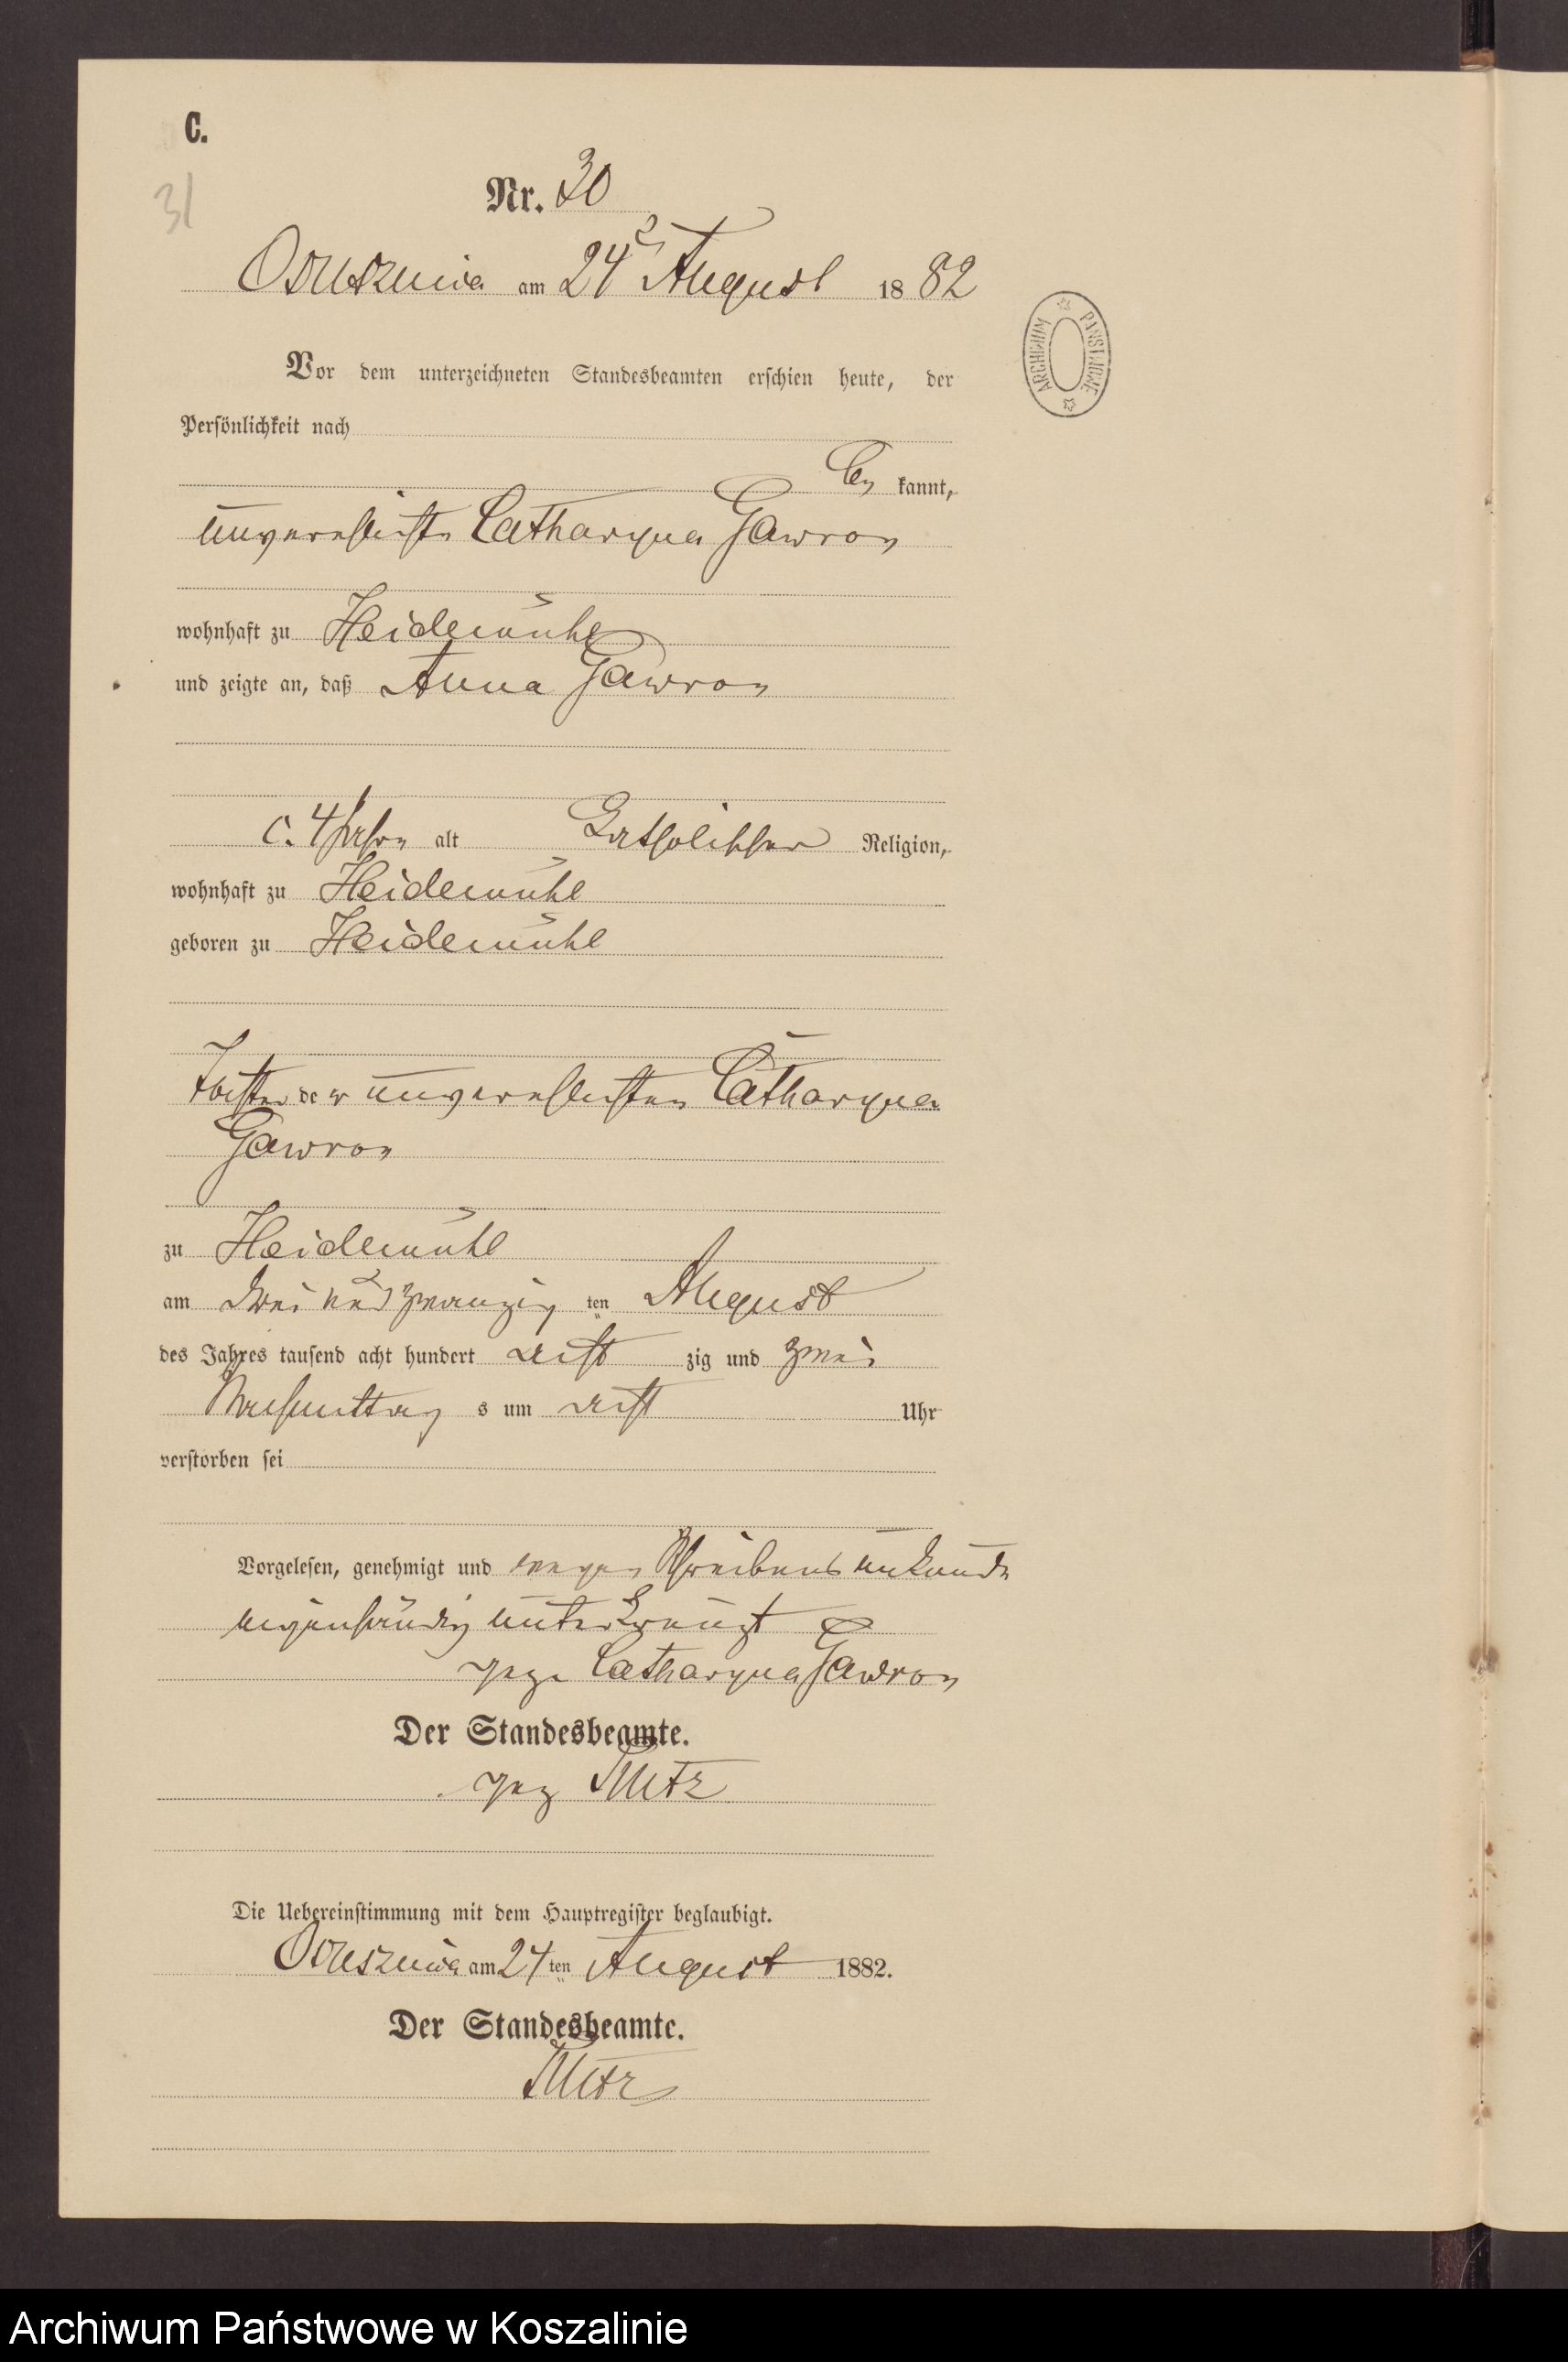 C.
31
Nr. 30
Ossuszniza am 24 August 1882
Vor dem unterzeichneten Standesbeamten erschien heute, der
Persönlichkeit nach
be kannt,
unverehelichte Catharyna Gawron
wohnhaft zu Heidemühl
und zeigte an, daß Anna Gawron
c. 4 Jahre alt Katholischer Religion,
wohnhaft zu Heidemühl
geboren zu Heidemühl
Tochter der unverehelichten Catharyna
Gawron
zu Heidemühl
am zwanzig ten August
des Jahres tausend acht hundert acht zig und zwei
Nachmittag s um acht Uhr
verstorben sei
Vorgelesen, genehmigt und wegen Schreibens unkunde
eigenhändig unterkreuzt
gez. Catharyna Gawron
Der Standesbeamte.
gez
Die Uebereinstimmung mit dem Hauptregister beglaubigt.
am 24 ten August 1882.
Der Standesbeamte.
ARCHIWUM PAŃSTWOWE
Archiwum Państwowe w Koszalinie